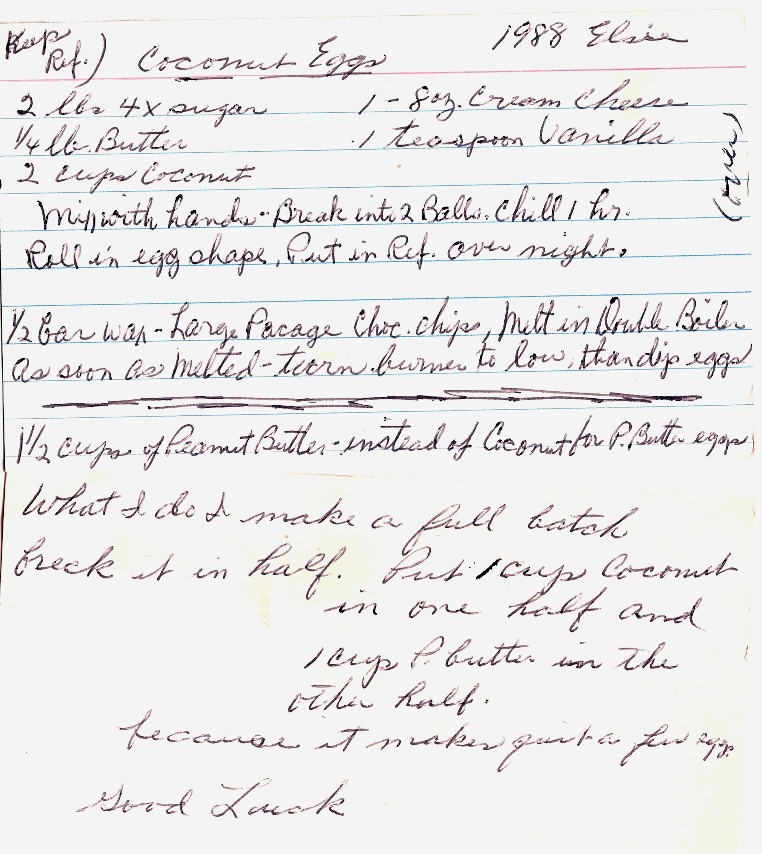 Keep
Ref.) Coconut Eggs 1988 Elsie
2 lbs 4x sugar 1 - 8oz. Cream Cheese
1/4 lb. Butter 1 teaspoon Vanilla
2 cups Coconut
(over)
Mix with hands - Break into 2 Balls. Chill 1 hr.
Roll in egg shape, Put in Ref. over night.
1/2 bar wax - Large Pacage Choc. chips, Melt in Double Boiler
As soon as Melted - turn burner to low, than dip eggs
1 1/2 cups of Peanut Butter - instead of Coconut for P. Butter eggs
What I do I make a full batch
breck it in half. Put 1 cup Coconut
in one half and
1 cup P. butter in the
other half.
because it makes quit a few eggs.
Good Luck